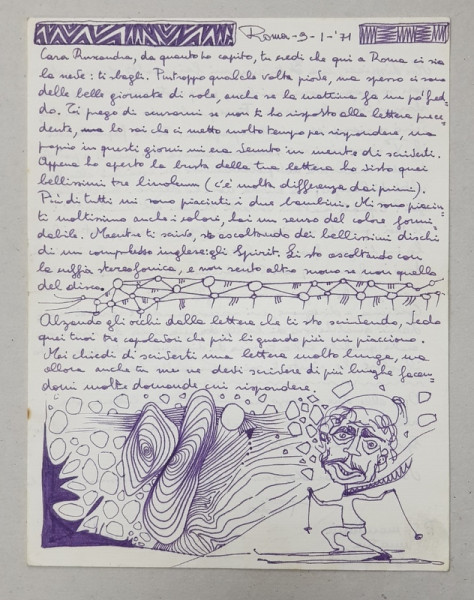 Roma-9-1-'71
Cara Ruxandra, da quanto ho capito, tu credi che qui a Roma ci sia
la neve: ti sbagli. Purtroppo qualche volta piove, ma spesso ci sono
delle belle giornate di sole, anche se la mattina fa un po' fred=
do. Ti prego di scusarmi se non ti ho risposto alla lettera prece=
dente, ma lo sai che ci metto molto tempo per rispondere, ma
proprio in questi giorni mi era venuto in mente di scriverti.
Appena ho aperto la busta della tua lettera ho visto quei
bellissimi tre linoleum (c'è molta differenza dai primi).
Più di tutti mi sono piaciuti i due bambini. Mi sono piaciu=
ti moltissimo anche i colori, hai un senso del colore formi=
dabile. Mentre ti scrivo, sto ascoltando dei bellissimi dischi
di un complesso inglese: gli Spirit. Li sto ascoltando con
la cuffia stereofonica, e non sento altro suono se non quello
del disco.
Alzando gli occhi dalla lettera che ti sto scrivendo, vedo
quei tuoi tre capolavori che più li guardo più mi piacciono.
Mi chiedi di scriverti una lettera molto lunga, ma
allora anche tu me ne devi scrivere di più lunghe facen=
domi molte domande cui rispondere.